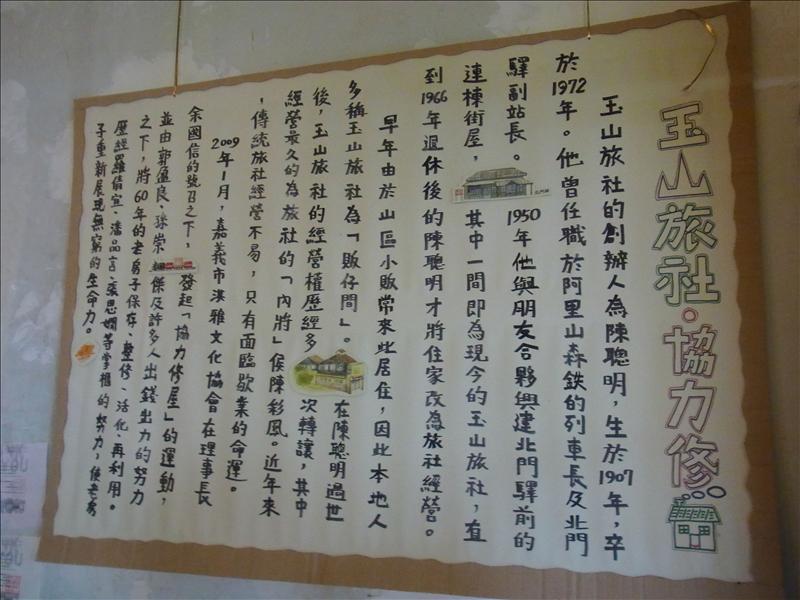 玉山旅社·協力修
玉山旅社的創辦人為陳聰明，生於1907年，卒
於1972年。他曾任職於阿里山森鐵的列車長及北門
驛副站長。1950年他與朋友合夥興建北門驛前的
連棟街屋，其中一間即為現今的玉山旅社，直
到1966年退休後的陳聰明才將住家改為旅社經營。
早年由於山區小販常來此居住，因此本地人
多稱玉山旅社為「販仔間」。在陳聰明過世
後，玉山旅社的經營權歷經多次轉讓，其中
經營最久的為旅社的「內將」侯陳彩鳳。近年來
，傳統旅社經營不易，只有面臨歇業的命運。
2009年1月，嘉義市洪雅文化協會在理事長
余國信的號召之下，發起「協力修屋」的運動，
並由郭盈良、孫崇傑及許多人出錢出力的努力
之下，將60年的老房子保存、整修、活化、再利用。
歷經羅倩宜、潘品言、袁思嫺等掌櫃的努力，使老房
子重新展現無窮的生命力。